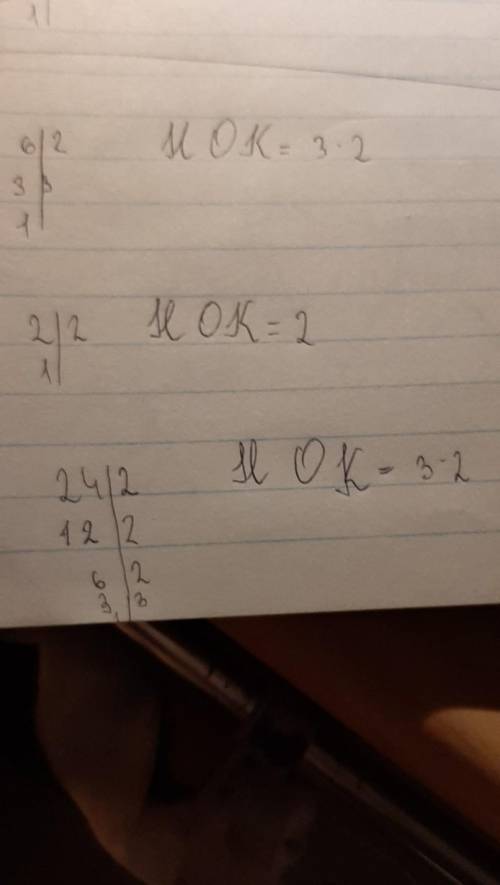 1|
6|2 НОК = 3·2
3|3
1|
2|2 НОК = 2
1|
24|2 НОК = 3·2
12|2
6|2
3|3